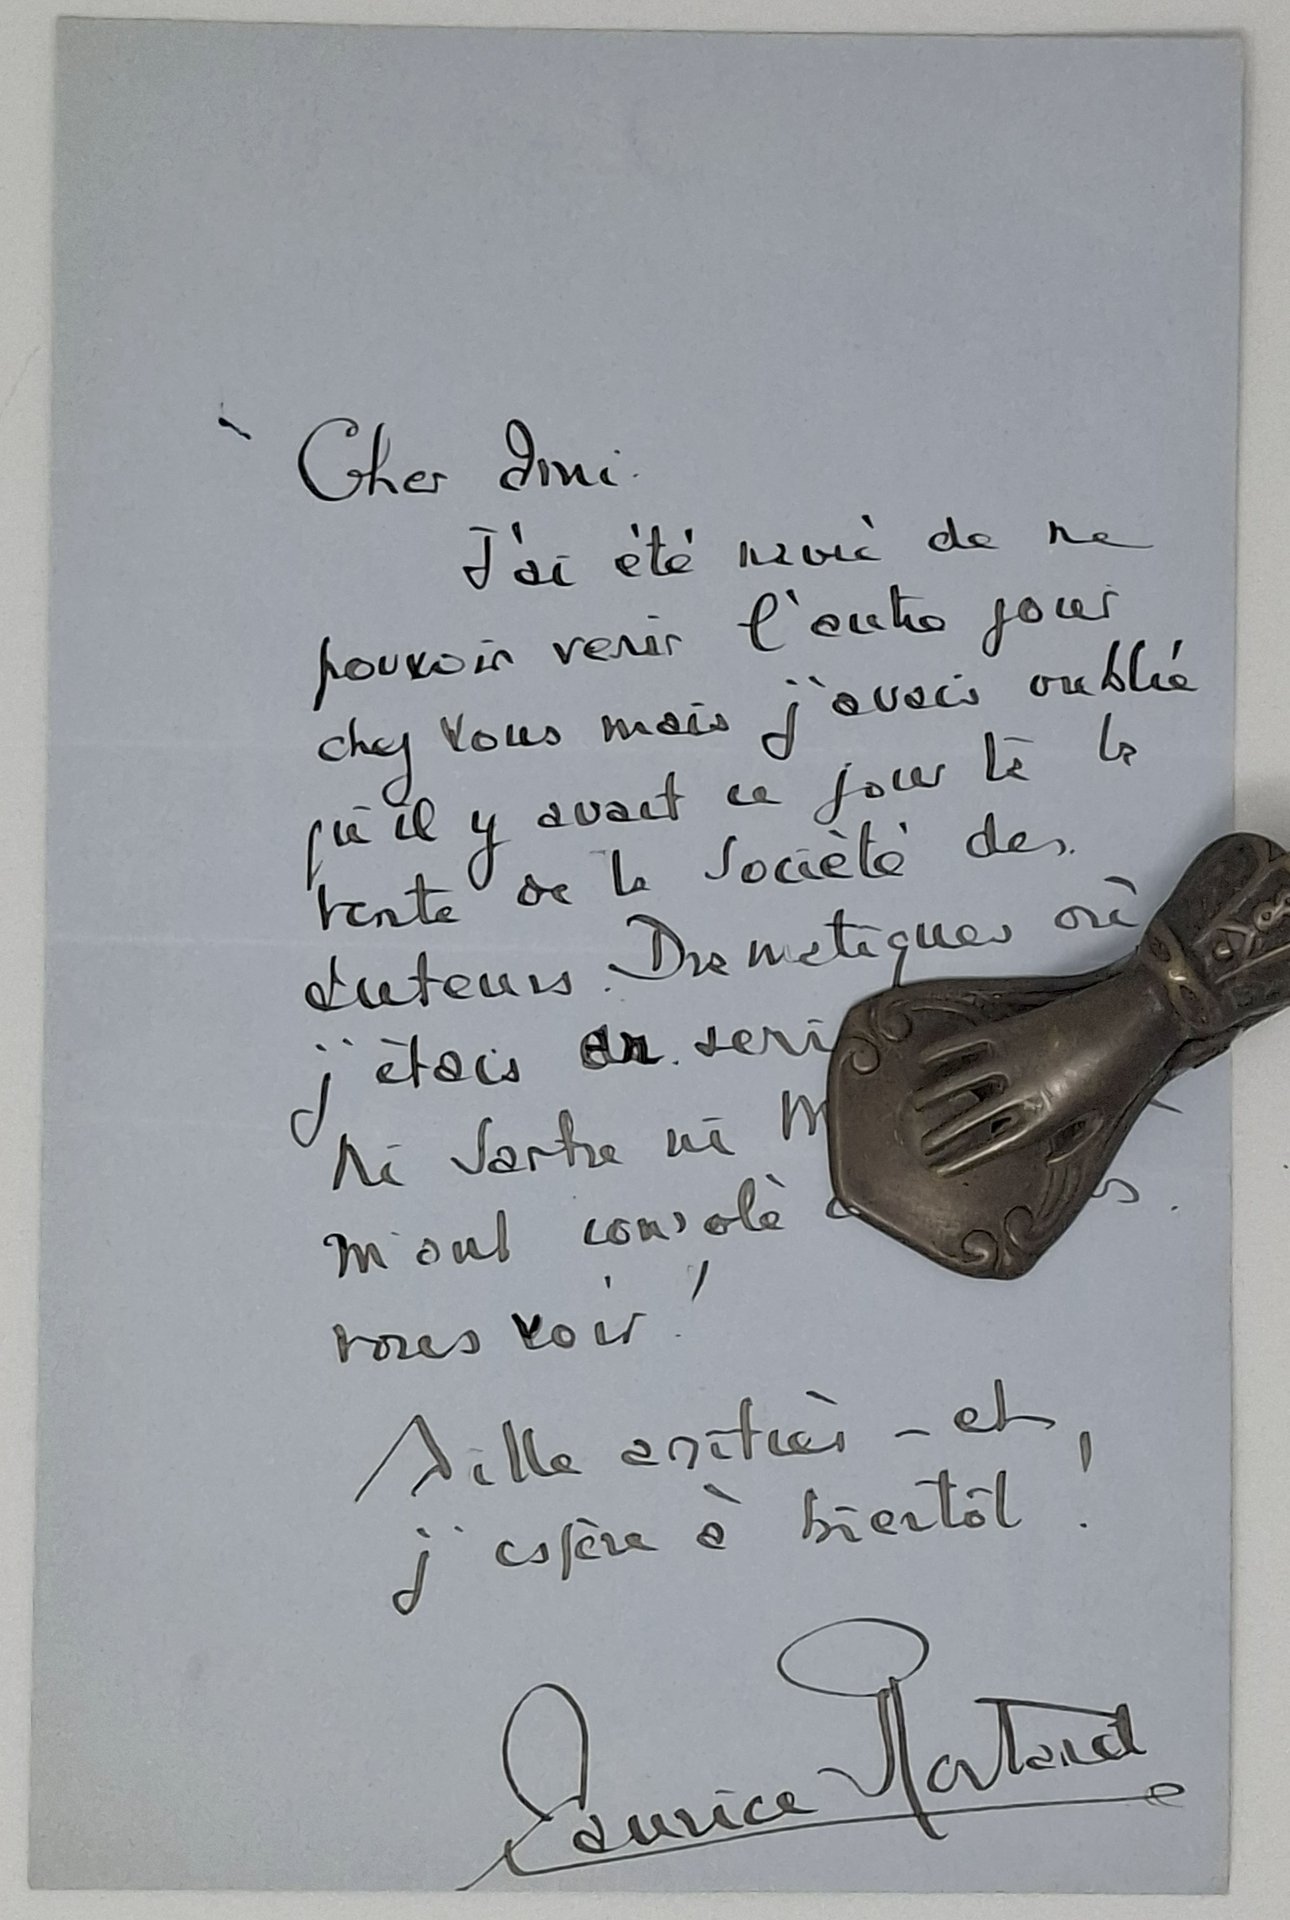 Cher Ami.
J'ai été navré de ne
pouvoir venir l'autre jour
chez vous mais j'avais oublié
qu'il y avait ce jour là la
vente de la Société des
Auteurs Dramatiques où
j'étais en
Ni Sartre ni
m'ont consolé
vous voir !
Mille amitiés - et
j'espère à bientôt !
Maurice Rostand